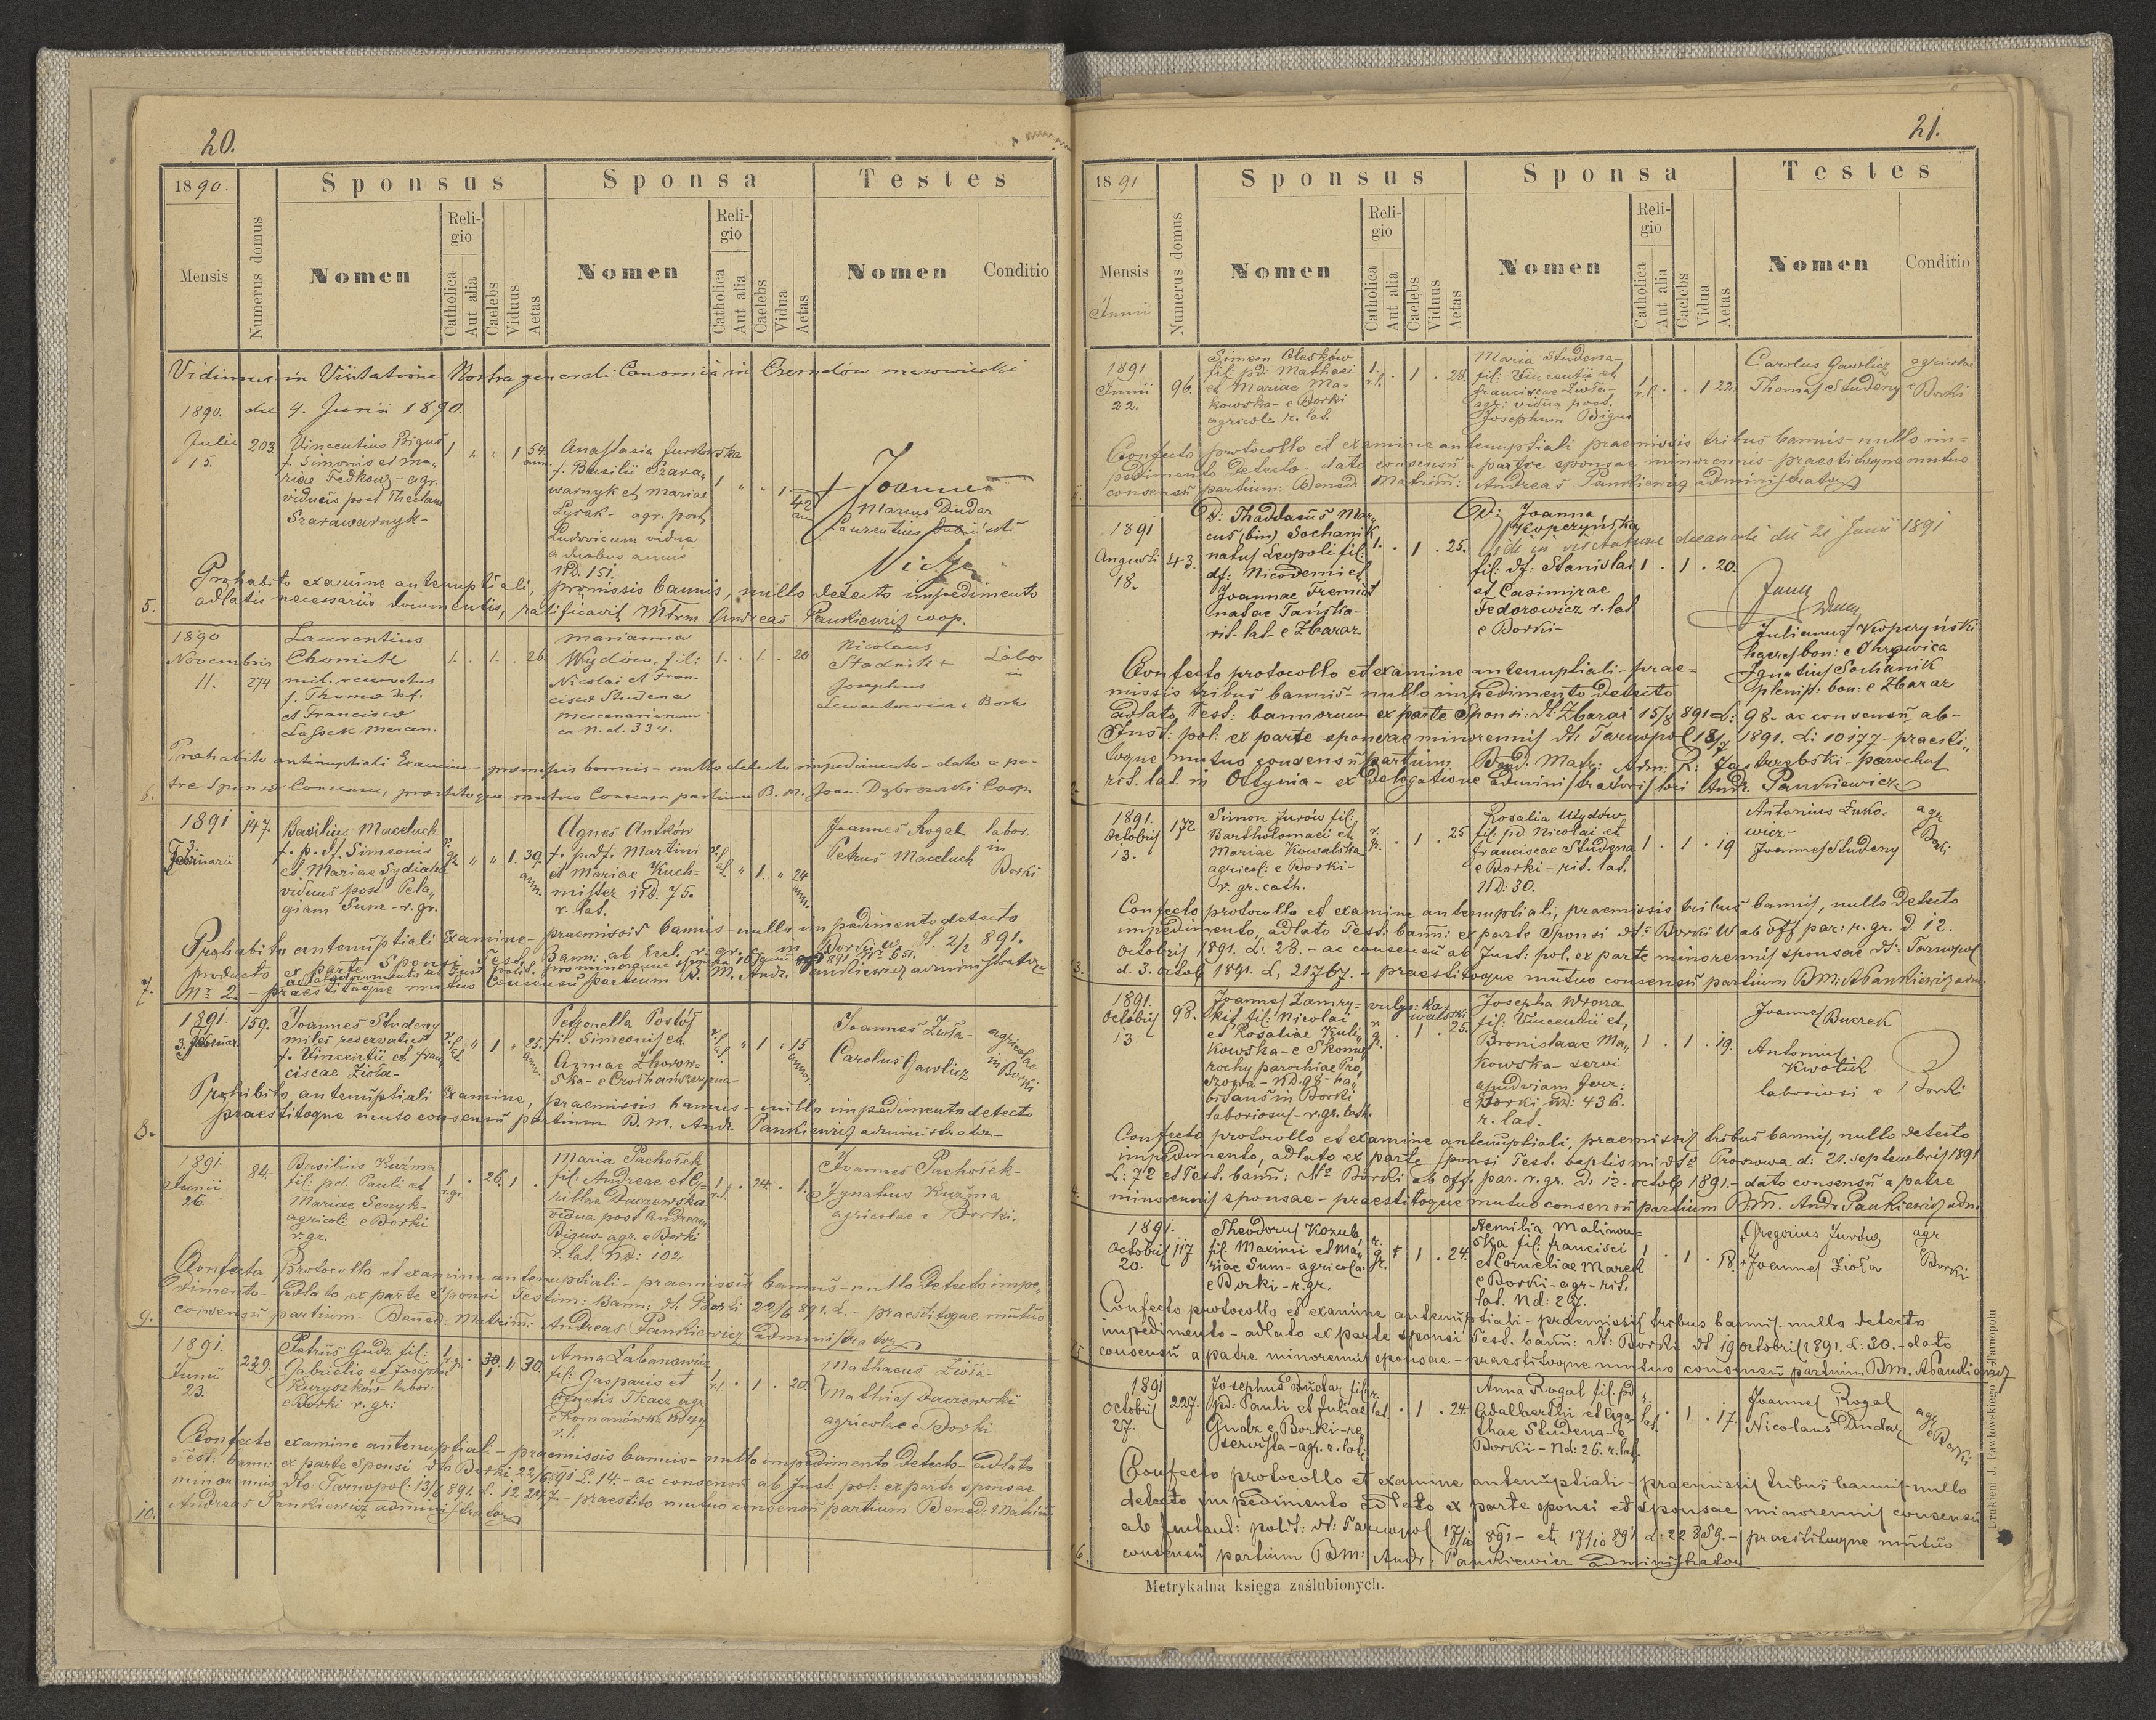 20.
1890.
Sponsus
Sponsa
Testes
Mensis
Numerus domus
Nomen
Religio
Catholica
Aut alia
Caelebs
Viduus
Aetas
Nomen
Religio
Catholica
Aut alia
Caelebs
Vidua
Aetas
Nomen
Conditio
Vidimus in Visitatione Nostra generali Canonica in
1890. die 4. Junii 1890.
Julii
15.
203.
Vincentius Bigus
f. Simonis et Ma„
riae Fedkowz - agr.
viduus post Theclam
Szarawarnyk-
1 „ „ 1 54
ann.
Anastasia
f. Basilii Szara„
warnyk et Mariae
Lysak - agr. post
Ludovicum vidua
a duobus annis
ND. 151
1 „ „ 1
42
an
Joannes
Marcus Dudar
Laurentius
5.
Prohabito examine antenuptiali, promissis bannis, nullo detecto impedimento
adlatis necessariis documentis, ratificavit Mtrm Andreas Pankiewicz coop.
1890
Novembris
11.
274
Laurentius
Chomick
mil. reservatus
f. Thoma def.
et Francisca
Lassek mercen.
1. . 1. . 26.
Marianna
Wydów, fil:
Nicolai et Fran-
cisca Studena
mercenariorum
ex N. d. 334.
1. . 1. . 20
Nicolaus
Stadnik +
Josephus
Labor
in
Borki
6.
Prohabito antinuptiali Examine - premissis bannis - nullo detecto impedimento - dato a pa-
tre Sponsae Consensu, praestitoque mutuo Consensu partium B. M. Joan. Dąbrowski Coop.
1891
Februarii
147
Basilius Maceluch
f. p. df. Simeonis
et Mariae Sydiak
viduus post Pela„
giam Sum - r. gr.
r.
gr. „ „ 1. 30.
ann.
Agnes Antków
f. p. df. Martini
et Mariae Kuch-
mister ND. 75.
r. lat.
„ 1. „ 24
ann.
Joannes Rogal
Petrus Maceluch
labor.
in
Borki
7.
Prohabito antenuptiali Examine - praemissis bannis - nullo impedimento detecto
producto ex parte Sponsi Test. Bann: ab Eccl. r. gr. in Borki d. 2/2 891.
Nr 2. - praestitoque mutuo Consensu partium B. M. Andr. Pankiewicz administrator
1891
3. Februar.
159.
Joannes Studeny
miles reservatus
f. Vincentii et Fran„
ciscae Zioła-
„ 1 „ 25.
ann.
Petronella Postój
fil. Simeonis et
Annae Zborow-
ska -
„ 1 „ 15
annor.
Joannes Zioła-
Carolus Gawlicz
agricolae
in Borki
8.
Prohibito antenuptiali Examine, praemissis bannis - nullo impedimento detecto
praestitoque mutuo consensu partium B. M. Andr Pankiewicz administrator-
1891.
Junii
26.
84.
Basilius Kuźma
fil: pd. Pauli et
Mariae Senyk-
agricol: e Borki
r. gr.
1
r. gr. . 26. 1 .
Maria Pachołek
fil. Andreae et Cy-
rillae Daczewska
vidua post Andream
Bigus agr. e Borki
r. lat. ND: 102
1
r. l. . 24. . 1.
Joannes Pachołek-
Ignatius Kuźma
agricolae e Borki.
9.
Confecto Protocollo et examine antenuptiali - praemissis bannis - nullo detecto impe„
dimento - adlato ex parte Sponsi Testim: Bann: dt. Borki 22/6 891. L. - praestitoque mutuo
consensu partium - Bened: Matrim: Andreas Pankiewicz administrator
1891.
Junii
23.
229.
Petrus Gudz fil:
Gabrielis et Josephae
Kuryszków labor:
e Borki r. gr:
1
r. gr. . 30. 1. 30.
Anna Łabanowicz
fil: Gasparis et
Agnetis Tkacz agr
e Romanówka ND 49
r. l.
1
r. l. . 1 . 20.
Mathaeus Zioła-
Mathias Daczewski
agricolae e Borki
10.
Confecto examine antenuptiali - praemissis bannis - nullo impedimento detecto - adlato
Test: bann: ex parte Sponsi dto Borki 22/6 891 L. 14. - ac consensu ab Inst: pol: ex parte sponsae
minorennis dto: Tarnopol: 13/6 891. L. 12 247. - praestito mutuo consensu partium Bened: Matrim:
Andreas Pankiewicz administrator
21.
1891
Sponsus
Sponsa
Testes
Mensis
Junii
Numerus domus
Nomen
Religio
Catholica
Aut alia
Caelebs
Viduus
Aetas
Nomen
Religio
Catholica
Aut alia
Caelebs
Vidua
Aetas
Nomen
Conditio
1891
Junii
22.
96.
Simeon Olesków
fil: pd: Mathaei
et Mariae Ma-
kowska - e Borki
agricol: r. lat.
1.
r. l. . 1 . 28.
Maria Studena-
fil: Vincentii et
Franciscae Zioła-
agr: vidua post.
Josephum Bigus
1
r. l. . . 1 22.
Carolus Gawlicz
Thomas Studeny
agricolae
e
Borki
1.
Confecto protocollo et examine antenuptiali praemissis tribus bannis - nullo im-
pedimento detecto - dato consensu a patre sponsae minorennis - praestitoque mutuo
consensu partium: Bened: Matrim: Andreas Pankiewicz administrator
1891
Augusti
18.
43.
D: Thaddaeus Mar„
cus (bin) Sochanik
natus Leopoli fil:
df: Nicodemi et
Joannae Fremiot
natae Tańska-
rit. lat. e Zbaraz
1. . 1 . 25.
D: Joanna
Kopczyńska
fil: df: Stanislai
et Casimirae
Fedorowicz r. lat
e Borki-
1 . 1 . 20.
Vidi in visitatione decanali die 21 Junii 1891
Julianus Kopczyński
haeres bon: e Ohrywica
Ignatius Sochanik
plenip: bon: e Zbaraz
2.
Confecto protocollo et examine antenuptiali - prae=
missis tribus bannis - nullo impedimento detecto
adlato Test: bannorum ex parte Sponsi: dt. Zbaraż 15/8 891 L: 98. - ac consensu ab-
Inst: pol: ex parte sponsae minorennis dt. Tarnopol 18/7 1891. L: 10177 - praesti„
toque mutuo consensu partium Bend: Matr: Adm: R: Jastrzębski - parochus
rit. lat. in Ottynia - ex delegatione administratoris loci Andr. Pankiewicz
1891.
Octobris
13.
172
Simon Jurów fil:
Bartholomaei et
Mariae Kowalska
agricol: e Borki-
r. gr. cath.
r.
gr. . 1 . 25
Rosalia Wydów
fil: pd Nicolai et
Franciscae Studena
e Borki - rit. lat.
ND: 30.
1 . 1 . 19
Antonius Łuko-
wicz-
Joannes Studeny
agr
e
Borki
3.
Confecto protocollo et examine antenuptiali, praemissis tribus bannis, nullo detecto
impedimento, adlato Test: bann: ex parte Sponsi dt: Borki W ab off par: r. gr. d. 12.
Octobris 1891. L. 28. - ac consensu ab Inst. pol. ex parte minorennis sponsae dt: Tarnopol
d. 3. octob 1891. L, 21767. - praestitoque mutuo consensu partium BM: APankiewicz adm.
1891.
Octobris
13.
98.
Joannes Zamry-
kit fil: Nicolai
et Rosaliae Kuli„
kowska - e Skomo„
rochy parochiae Pro„
szowa - ND. 98 - ha„
bitans in Borki
laboriosus - r. gr. cath.
vulgo: Kowalski
r.
gr. . 1 . 25.
Josepha Wrona
fil: Vincentii et
Bronislaae Ma„
kowska - servi
apud viam ferr:
e Borki ND: 436.
r. lat.
1 . 1 . 19.
Joannes Bucrek
Antonius
Kwotik
laboriosi e Borki
4.
Confecto protocollo et examine antenuptiali, praemissis tribus bannis, nullo detecto
impedimento, adlato ex parte sponsi Test. baptismi dto Prosowa d: 21. septembris 1891
L: 72 et Test. bann: dto Borki ab off. par. r. gr. D. 12 octob 1891. - dato consensu a patre
minorennis sponsae - praestitoque mutuo consensu partium B.M. Andr Pankiewicz adm.
1891.
Octobris
20.
117
Theodorus Kozub,
fil. Maximi et Ma„
riae Sum - agricola
e Borki - r. gr.
r.
gr. 1 . 24.
Aemilia Malinow-
ska fil: Francisci
et Corneliae Marek
e Borki - agr - rit.
lat. Nd: 267.
1 . 1 . 18.
+ Gregorius Jurów
+ Joannes Zioła
agr
e
Borki
5.
Confecto protocollo et examine antenuptiali - praemissis tribus bannis - nullo detecto
impedimento - adlato ex parte sponsi Test. bann: dt: Borki dt 19 octobris 1891. L: 30. - dato
consensu a patre minorennis sponsae - praestitoque mutuo consensu partium BM. APankiewicz
1891
Octobris
27.
227.
Josephus Dudar fil:
pd: Pauli et Juliae
Gudz e Borki - re„
servista - agr. r. lat:
r.
lat. . 1 . 24.
Anna Rogal fil. pd
Adalberthi et Aga„
thae Studena - e
Borki - Nd: 26. r. lat.
r.
lat. . 1 . 17.
Joannes Rogal
Nicolaus Dudar
agr
e Borki
6.
Confecto protocollo et examine antenuptiali - praemissis tribus bannis - nullo
detecto impedimento adlato ex parte sponsi et sponsae minorennis consensu
ab Instant: polit: dt: Tarnopol 17/10 891 - et 17/10 891 L: 22859. - praestitoque mutuo
consensu partium BM: Andr. Pankiewicz administrator
Metrykalna księga zaślubionych.
Drukiem J. Pawłowskiego w Tarnopolu